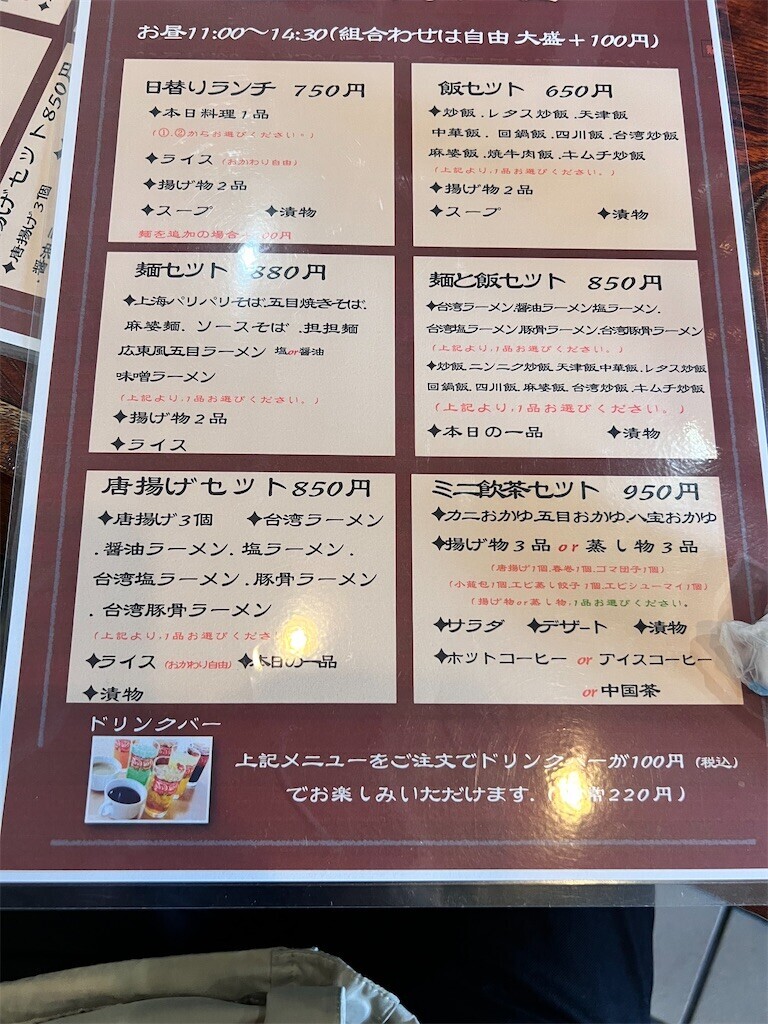 お昼11:00～14:30(組合わせは自由 大盛＋100円)
日替りランチ 750円
✦本日料理1品
(①.②からお選びください。)
✦ライス (おかわり自由)
✦揚げ物2品
✦スープ ✦漬物
麺を追加の場合 00円
飯セット 650円
✦炒飯.レタス炒飯.天津飯
中華飯. 回鍋飯.四川飯.台湾炒飯
麻婆飯.焼牛肉飯.キムチ炒飯
(上記より,1品お選びください。)
✦揚げ物2品
✦スープ ✦漬物
麺セット 880円
✦上海パリパリそば.五目焼きそば.
麻婆麺. ソースそば .担担麺
広東風五目ラーメン 塩or醤油
味噌ラーメン
(上記より,1品お選びください。)
✦揚げ物2品
✦ライス
麺と飯セット 850円
✦台湾ラーメン.醤油ラーメン塩ラーメン.
台湾塩ラーメン.豚骨ラーメン.台湾豚骨ラーメン
(上記より,1品お選びください。)
✦炒飯.ニンニク炒飯.天津飯.中華飯.レタス炒飯
回鍋飯.四川飯.麻婆飯.台湾炒飯.キムチ炒飯
(上記より,1品お選びください。)
✦本日の一品 ✦漬物
唐揚げセット850円
✦唐揚げ3個 ✦台湾ラーメン
.醤油ラーメン. 塩ラーメン.
台湾塩ラーメン.豚骨ラーメン
. 台湾豚骨ラーメン
(上記より,1品お選びくださ
✦ライス (おかわり自由) ✦本日の一品
✦漬物
ミニ飲茶セット 950円
✦カニおかゆ.五目おかゆ.八宝おかゆ
✦揚げ物3品 or 蒸し物3品
(唐揚げ1個.春巻1個.ゴマ団子1個)
(小籠包1個.エビ蒸し餃子1個.エビシューマイ1個)
(揚げ物or蒸し物,1品お選びください。
✦サラダ ✦デザート ✦漬物
✦ホットコーヒー or アイスコーヒー
or 中国茶
ドリンクバー
上記メニューをご注文でドリンクバーが100円 (税込)
でお楽しみいただけます.( 常220円)
げセット850円
✦唐揚げ3個